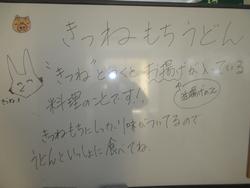 きつねもちうどん
"きつね"とつくとお揚げが入っている
料理のことです!!
きつねもちにしっかり味がついてるので
うどんといっしょに食べてね。